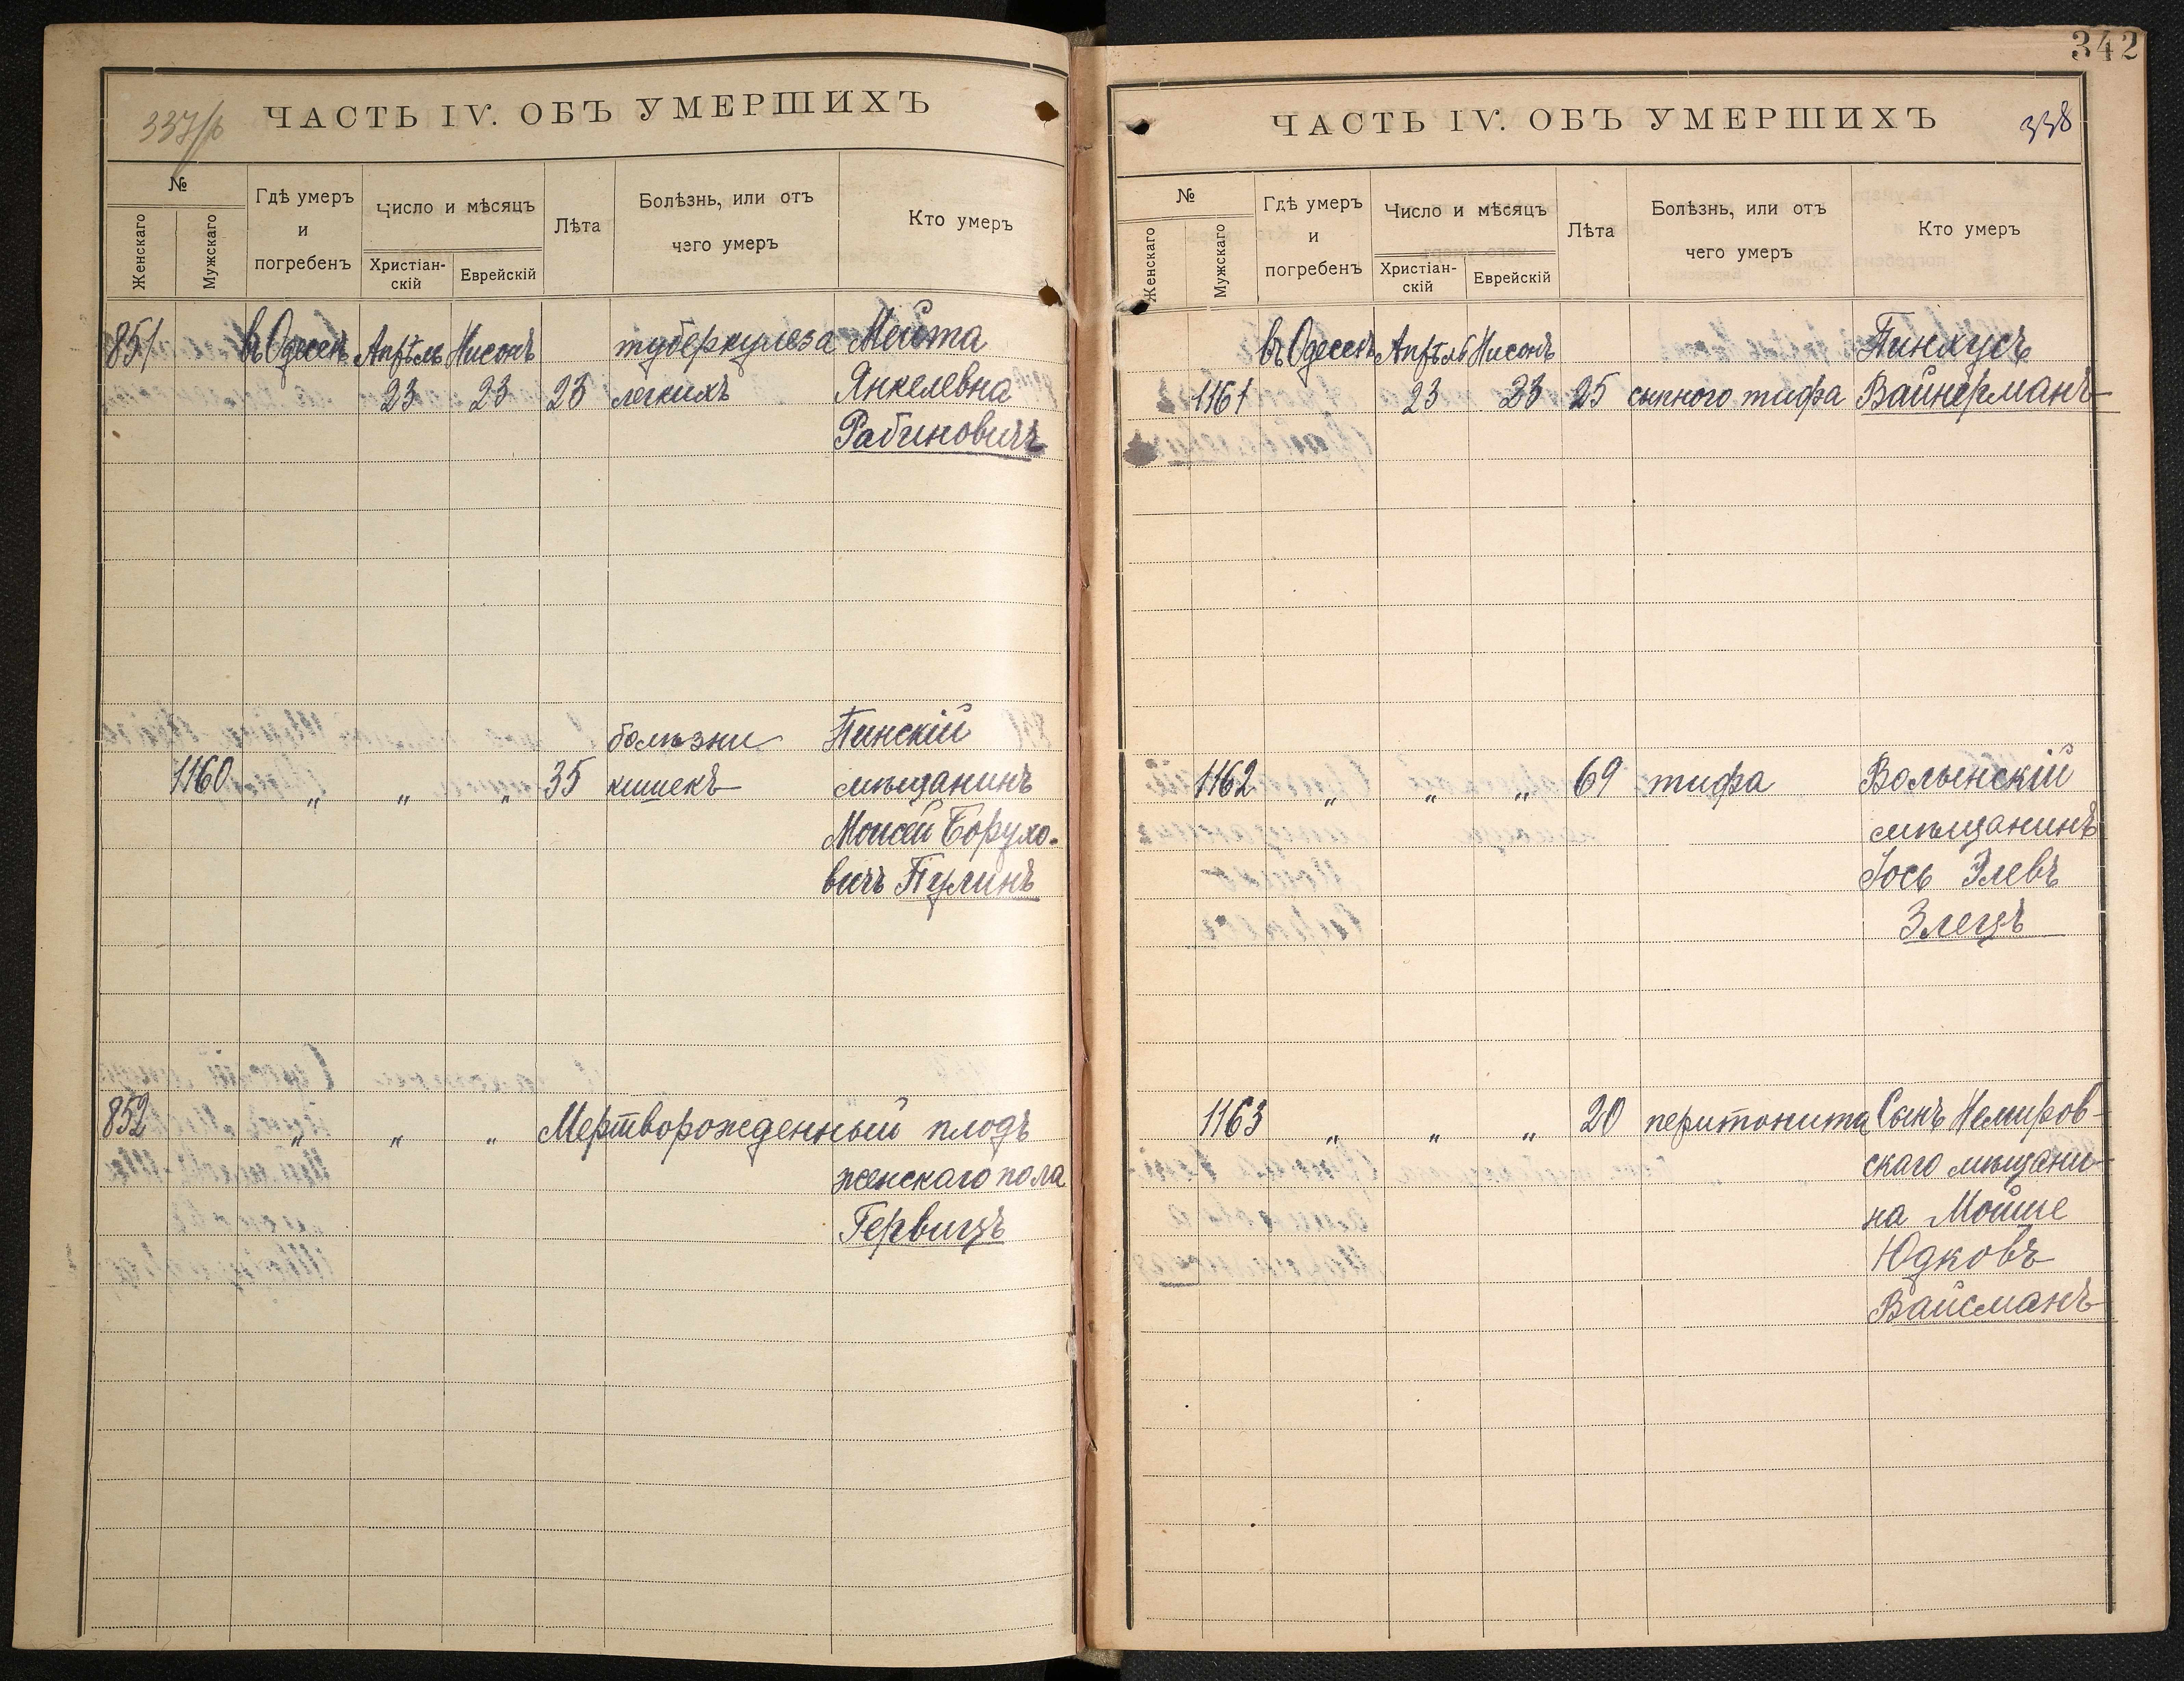 337/об
ЧАСТЬ IV. ОБЪ УМЕРШИХЪ
№
Женскаго
Мужскаго
Гдѣ умеръ
и
погребенъ
Число и мѣсяцъ
Христіан-
скій
Еврейскій
Лѣта
Болѣзнь, или отъ
чего умеръ
Кто умеръ
851 въ Одессѣ Апрѣль Нисонъ туберкулеза Мейта
23 23 23 легкихъ Янкелевна
Рабиновичъ
болѣзни Пинскій
1160 „ „ „ 35 кишекъ мѣщанинъ
Моисей Борухо-
вичъ Пулинъ
852 „ „ „ Мертворожденный плодъ
женскаго пола
Гервицъ
342
ЧАСТЬ IV. ОБЪ УМЕРШИХЪ
338
№
Женскаго
Мужскаго
Гдѣ умеръ
и
погребенъ
Число и мѣсяцъ
Христіан-
скій
Еврейскій
Лѣта
Болѣзнь, или отъ
чего умеръ
Кто умеръ
въ Одессѣ Апрѣль Нисонъ Пинхусъ
1161 23 23 25 сыпного тифа Вайнерманъ
1162 „ „ „ 69 тифа Волынскій
мѣщанинъ
Іось Элевъ
Злецъ
1163 „ „ „ 20 перитонита Сынъ Немиров-
скаго мѣщани-
на Мойше
Юдковъ
Вайсманъ